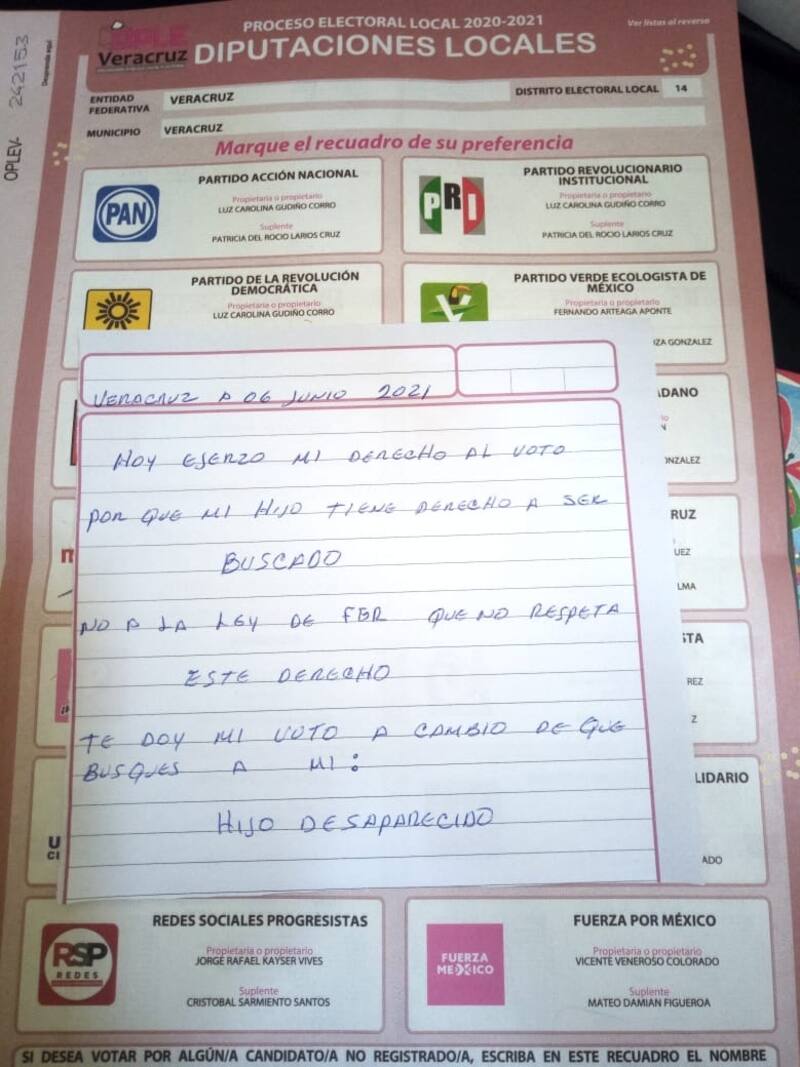 OPLEV- 242153
Desprenda aquí
OPLE
Veracruz
PROCESO ELECTORAL LOCAL 2020-2021
Ver listas al reverso
DIPUTACIONES LOCALES
ENTIDAD FEDERATIVA VERACRUZ DISTRITO ELECTORAL LOCAL 14
MUNICIPIO VERACRUZ
Marque el recuadro de su preferencia
PAN
PARTIDO ACCIÓN NACIONAL
Propietaria o propietario
LUZ CAROLINA GUDIÑO CORRO
Suplente
PATRICIA DEL ROCIO LARIOS CRUZ
PRI
PARTIDO REVOLUCIONARIO
INSTITUCIONAL
Propietaria o propietario
LUZ CAROLINA GUDIÑO CORRO
Suplente
PATRICIA DEL ROCIO LARIOS CRUZ
PARTIDO DE LA REVOLUCIÓN
DEMOCRÁTICA
Propietaria o propietario
LUZ CAROLINA GUDIÑO CORRO
PARTIDO VERDE ECOLOGISTA DE
MÉXICO
Propietaria o propietario
FERNANDO ARTEAGA APONTE
GONZALEZ
VERACRUZ A 06 JUNIO 2021
HOY EJERZO MI DERECHO AL VOTO
POR QUE MI HIJO TIENE DERECHO A SER
BUSCADO
NO A LA LEY DE FGR QUE NO RESPETA
ESTE DERECHO
TE DOY MI VOTO A CAMBIO DE QUE
BUSQUES A MI:
HIJO DESAPARECIDO
DADANO
ONZALEZ
RUZ
UEZ
LMA
STA
REZ
Z
LIDARIO
ADO
RSP
REDES
REDES SOCIALES PROGRESISTAS
Propietaria o propietario
JORGE RAFAEL KAYSER VIVES
Suplente
CRISTOBAL SARMIENTO SANTOS
FUERZA
MEXICO
FUERZA POR MÉXICO
Propietaria o propietario
VICENTE VENEROSO COLORADO
Suplente
MATEO DAMIAN FIGUEROA
SI DESEA VOTAR POR ALGÚN/A CANDIDATO/A NO REGISTRADO/A, ESCRIBA EN ESTE RECUADRO EL NOMBRE